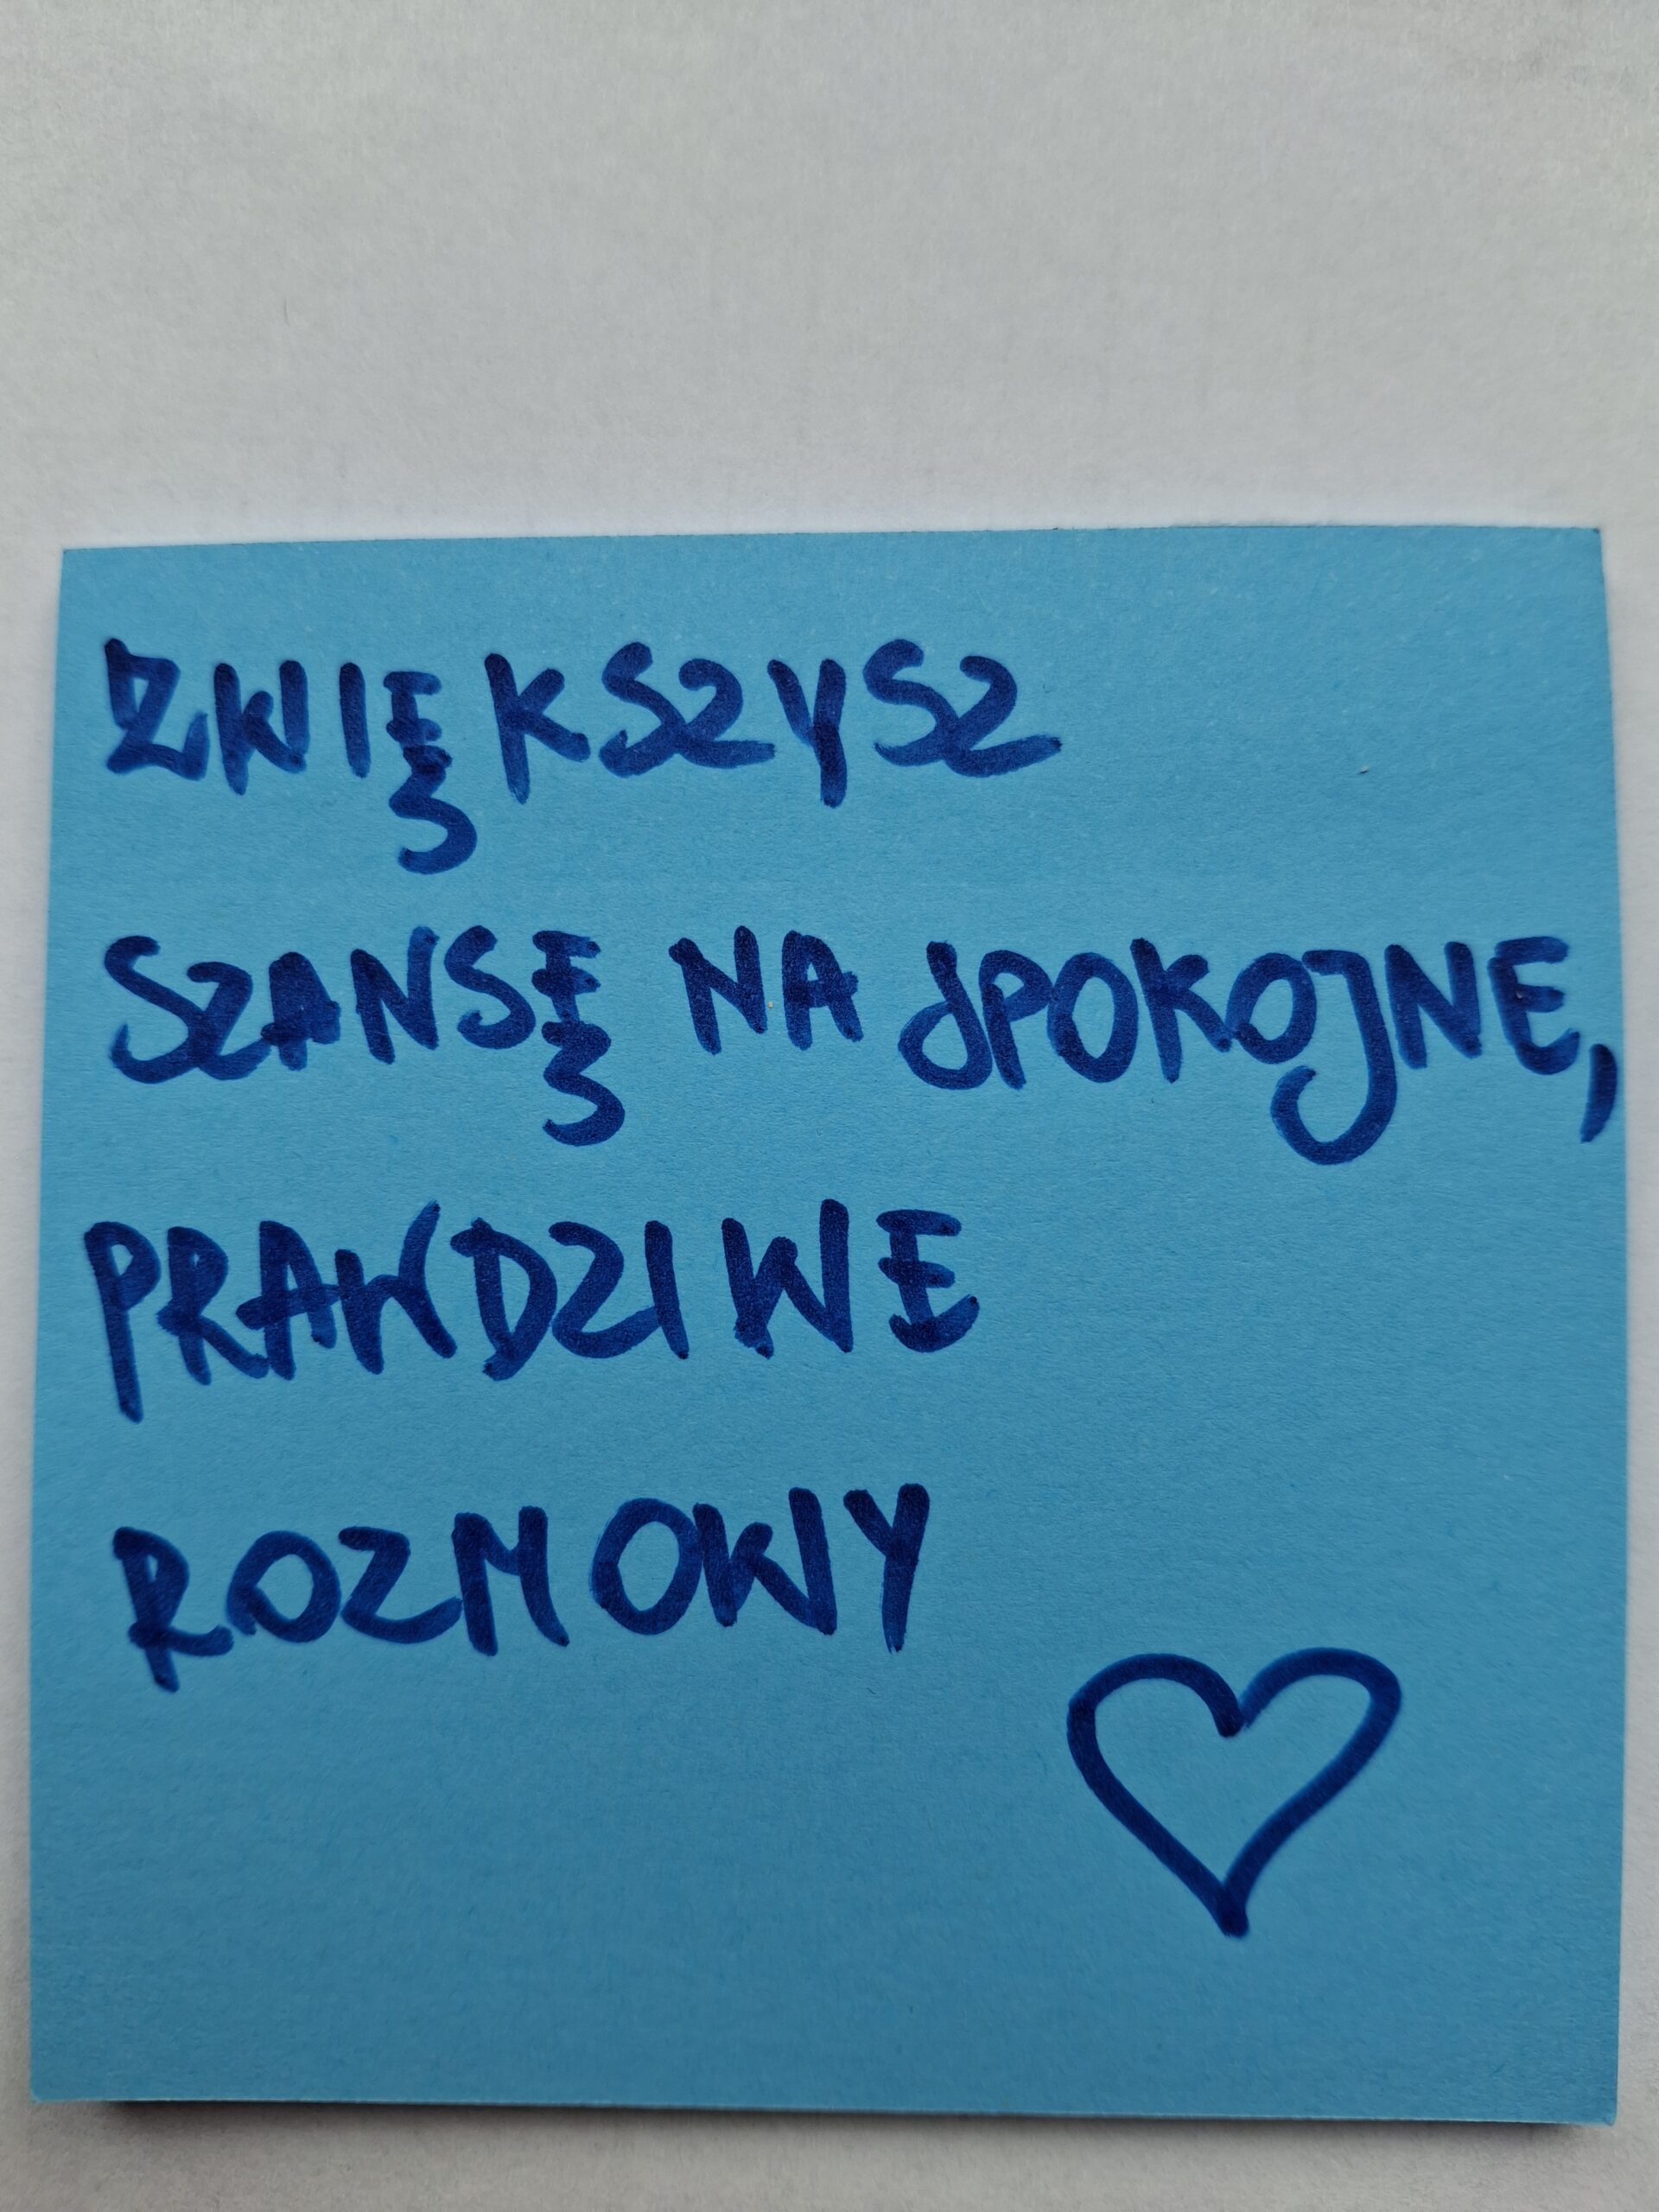 ZWIĘKSZYSZ
SZANSĘ NA SPOKOJNE,
PRAWDZIWE
ROZMOWY